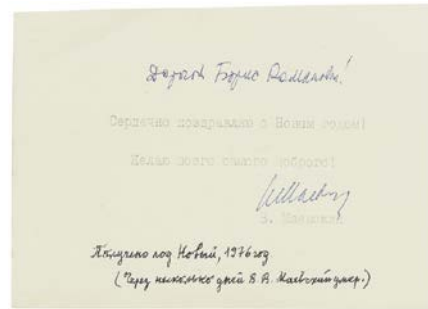 Дорогой Борис Романович!
Сердечно поздравляю с Новым годом!
Желаю всего самого доброго!
В. Маевский
Получено под Новый, 1976 год
(Через несколько дней В. А. Маевский умер.)